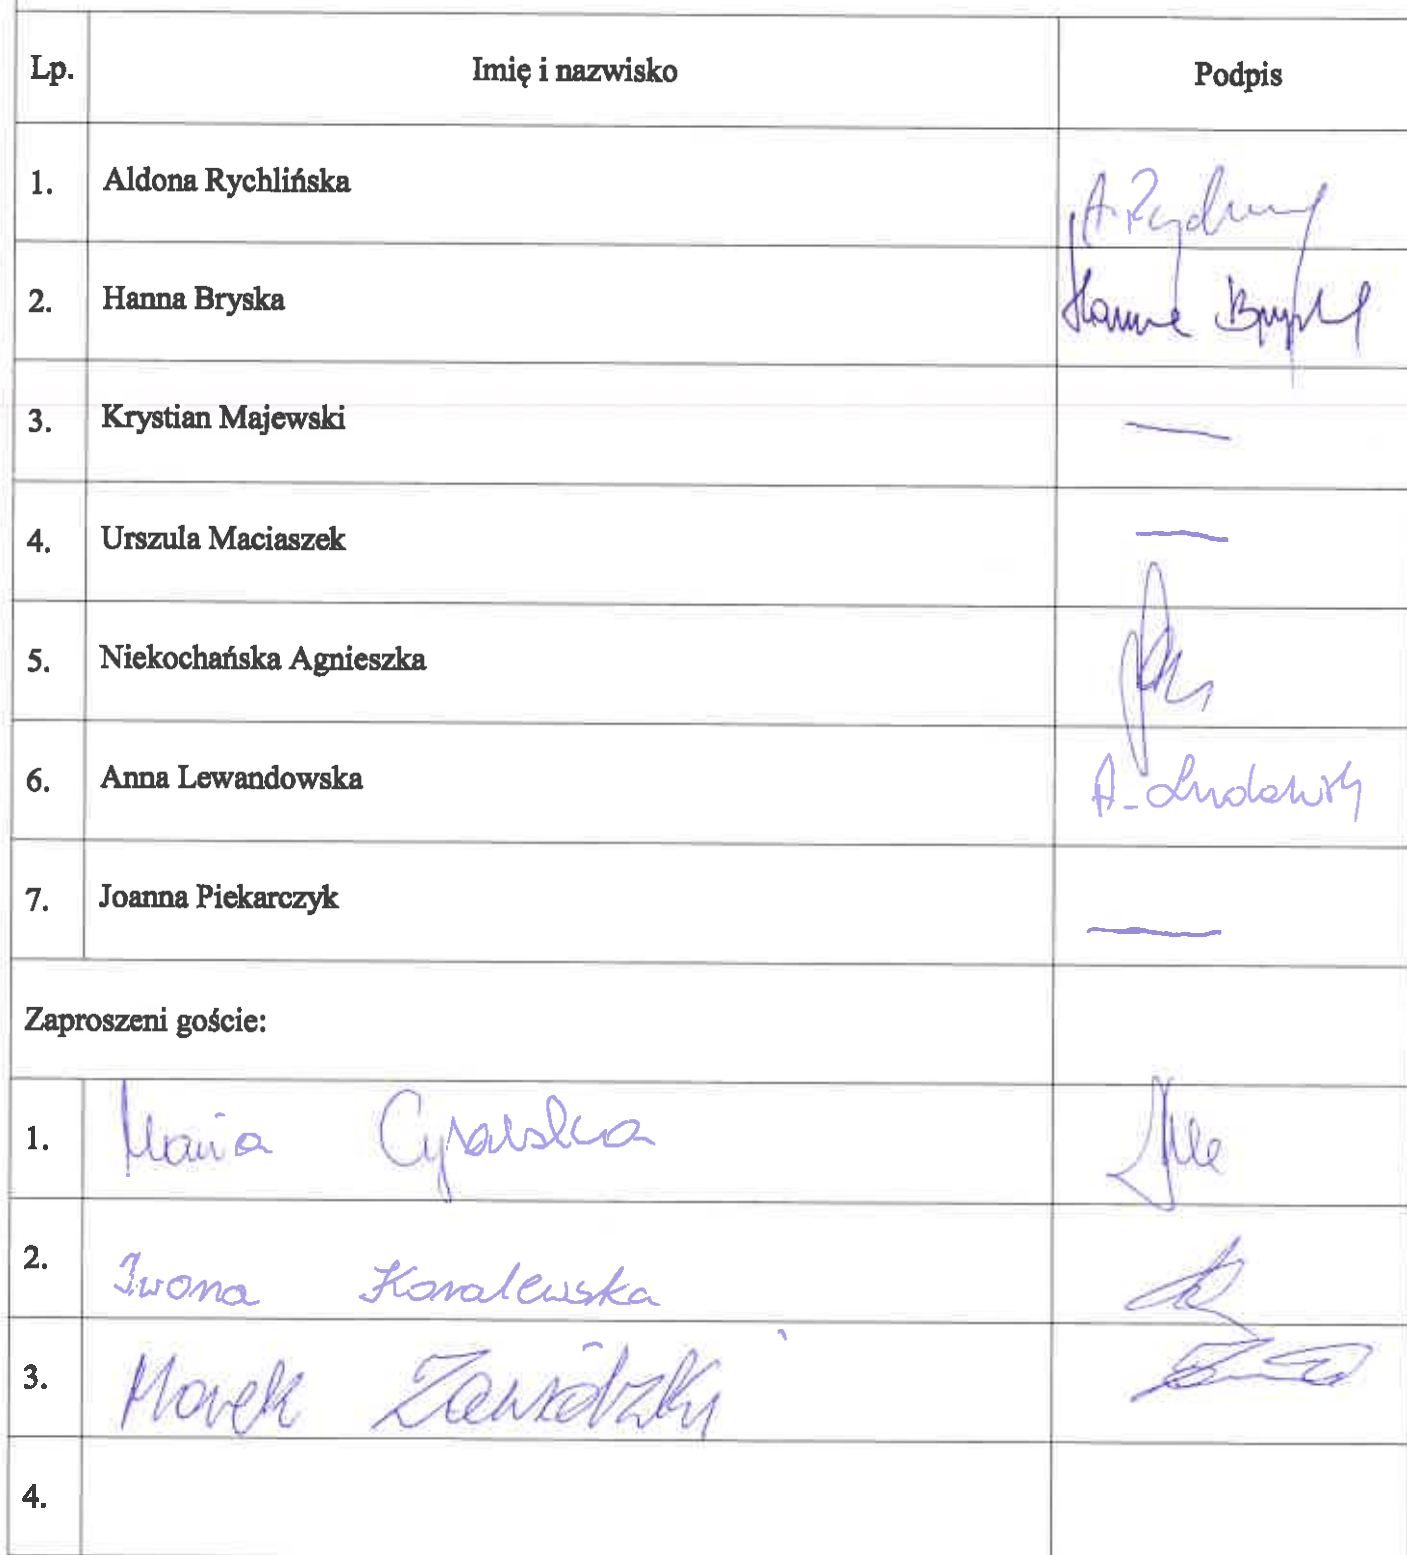 Lp. Imię i nazwisko Podpis
1. Aldona Rychlińska
2. Hanna Bryska Hanna Bryska
3. Krystian Majewski —
4. Urszula Maciaszek —
5. Niekochańska Agnieszka
6. Anna Lewandowska
7. Joanna Piekarczyk —
Zaproszeni goście:
1. Maria
2. Iwona Kowalewska
3. Marek Zawidzki
4.